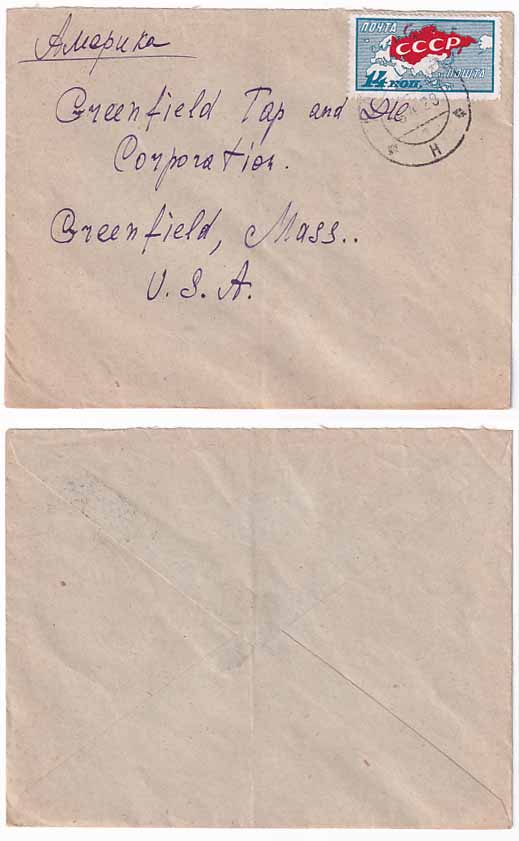 Америка
ПОЧТА
СССР
14 КОП. ПОШТА
Greenfield Tap and Die
Corporation.
Greenfield, Mass..
U.S.A.
Н